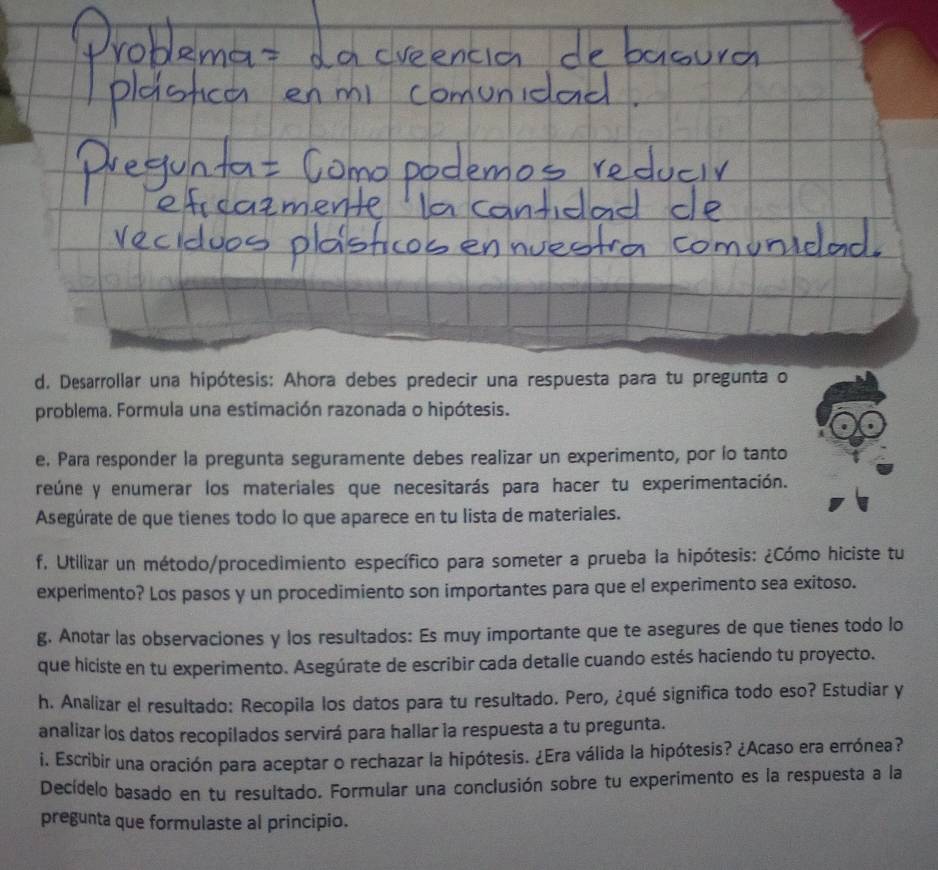 Problema= La creencia de basura
plástica en mi comunidad.
Pregunta= Como podemos reducir
eficazmente la cantidad de
reciduos plásticos en nuestra comunidad.
d. Desarrollar una hipótesis: Ahora debes predecir una respuesta para tu pregunta o
problema. Formula una estimación razonada o hipótesis.
e. Para responder la pregunta seguramente debes realizar un experimento, por lo tanto
reúne y enumerar los materiales que necesitarás para hacer tu experimentación.
Asegúrate de que tienes todo lo que aparece en tu lista de materiales.
f. Utilizar un método/procedimiento específico para someter a prueba la hipótesis: ¿Cómo hiciste tu
experimento? Los pasos y un procedimiento son importantes para que el experimento sea exitoso.
g. Anotar las observaciones y los resultados: Es muy importante que te asegures de que tienes todo lo
que hiciste en tu experimento. Asegúrate de escribir cada detalle cuando estés haciendo tu proyecto.
h. Analizar el resultado: Recopila los datos para tu resultado. Pero, ¿qué significa todo eso? Estudiar y
analizar los datos recopilados servirá para hallar la respuesta a tu pregunta.
i. Escribir una oración para aceptar o rechazar la hipótesis. ¿Era válida la hipótesis? ¿Acaso era errónea?
Decídelo basado en tu resultado. Formular una conclusión sobre tu experimento es la respuesta a la
pregunta que formulaste al principio.